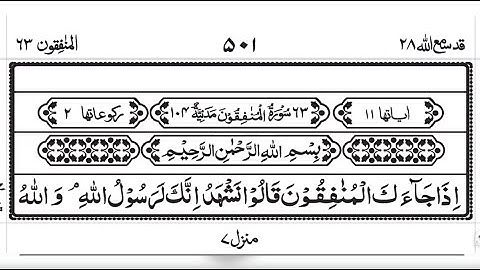 قد سمع الله ٢٨ ٥٠١ المنٰفقون ٦٣
اٰیاتها ١١ ٦٣ سُوْرَةُ الْمُنٰفِقُوْنَ مَدَنِيَّةٌ ١٠٤ رکوعاتها ٢
بِسْمِ اللهِ الرَّحْمٰنِ الرَّحِيْمِ
اِذَا جَآءَكَ الْمُنٰفِقُوْنَ قَالُوْا نَشْهَدُ اِنَّكَ لَرَسُوْلُ اللهِ ۘ وَاللهُ
منزل ٧